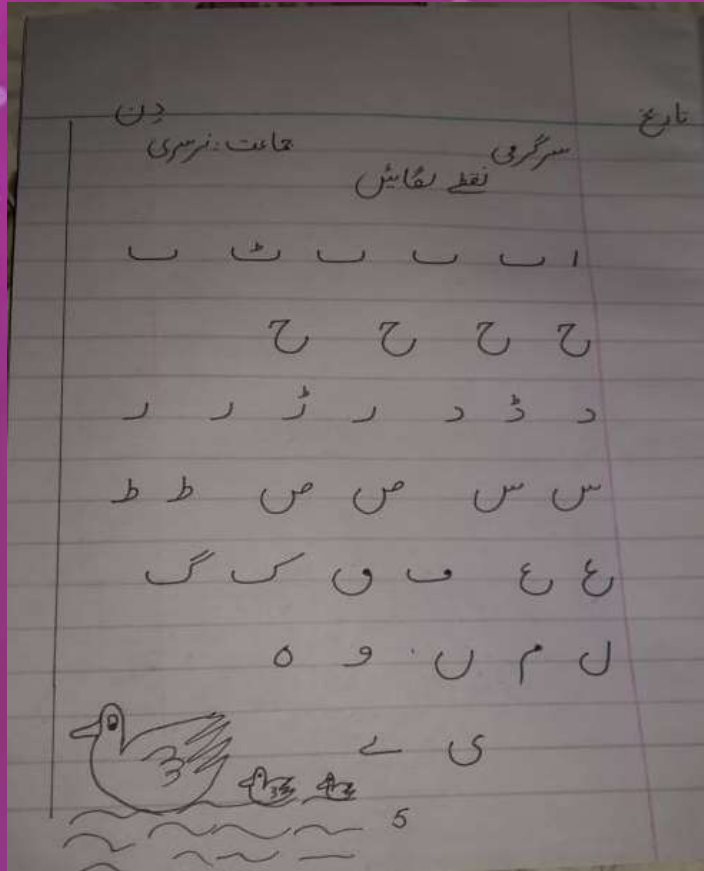 تاریخ دن
سرگرمی جماعت: نرسری
نقطے لگائیں
ا ٮ ٮ ٮ ٹ ٮ
ح ح ح ح
د ڈ د ر ڑ ر ر
س س ص ص ط ط
ع ع ڡ ٯ ک گ
ل م ں و ہ
ی ے
5